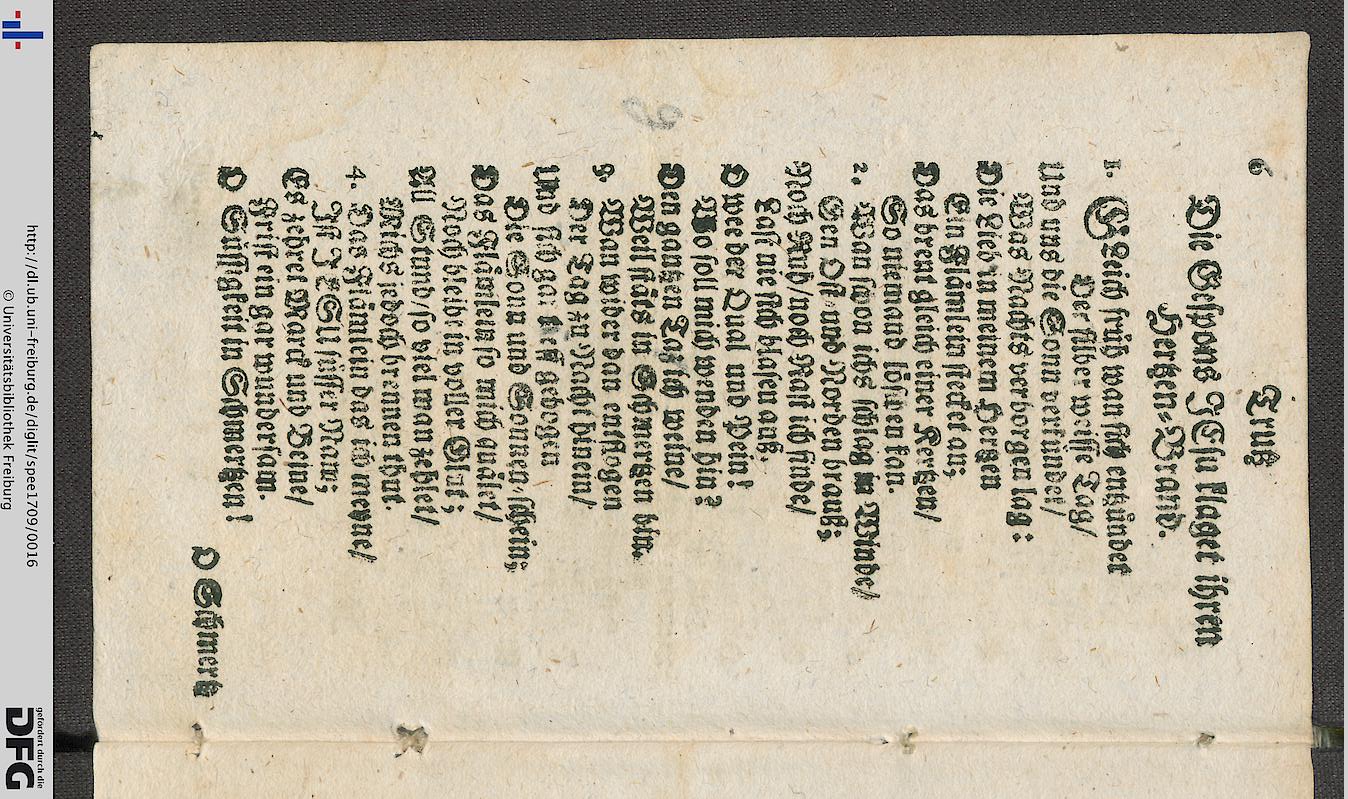 6
Trutz
Die Gespons JEsu klaget ihren
Hertzen-Brand.
1. GLeich früh wan sich entzündet
Der silber weisse Tag/
Und uns die Sonn verkündet/
Was Nachts verborgen lag:
Die Lieb in meinem Hertzen
Ein Flämlein stecket an;
Das brent gleich einer Kertzen/
So niemand löschen kan.
2. Wan schon ichs schlag in Winde/
Gen Ost- und Norden brauß;
Noch Ruh/ noch Rast ich finde/
Last nie sich blasen auß.
O wee der Qual und Pein!
Wo soll mich wenden hin?
Den gantzen Tag ich weine/
Weil stäts in Schmertzen bin.
3. Wan wider dan entflogen
Der Tag zu Nacht hinein/
Und sich gar tieff gebogen
Die Sonn und Sonnenschein;
Das Flämlein so mich quälet/
Noch bleibt in voller Glut;
All Stund/ so viel man zehlet/
Michs jedoch brennen thut.
4. Das Flämlein das ich meyne/
Ist JESU süsser Nam;
Es zehret Marck und Beine/
Frist ein gar wundersam.
O Süssigkeit in Schmertzen!
O Schmertz
http://dl.ub.uni-freiburg.de/diglit/spee1709/0016
© Universitätsbibliothek Freiburg
gefördert durch die
DFG